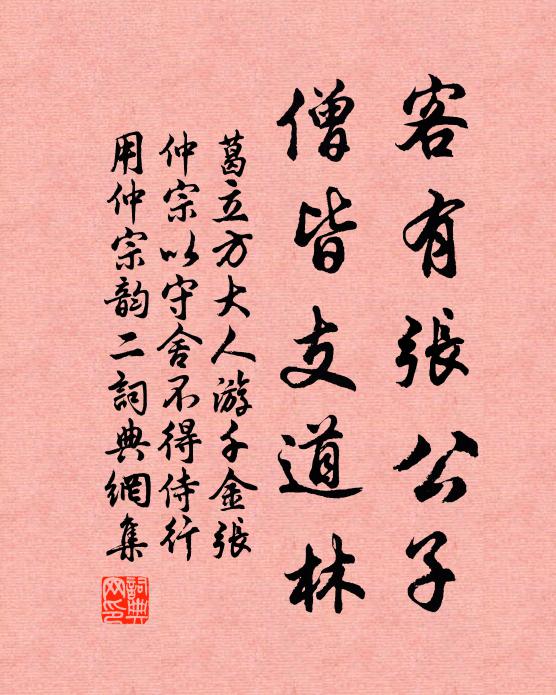 客有張公子
僧皆支道林
葛立方大人游千金張
仲宗以守舍不得侍行
用仲宗韵二詞典網集
詞典
网印